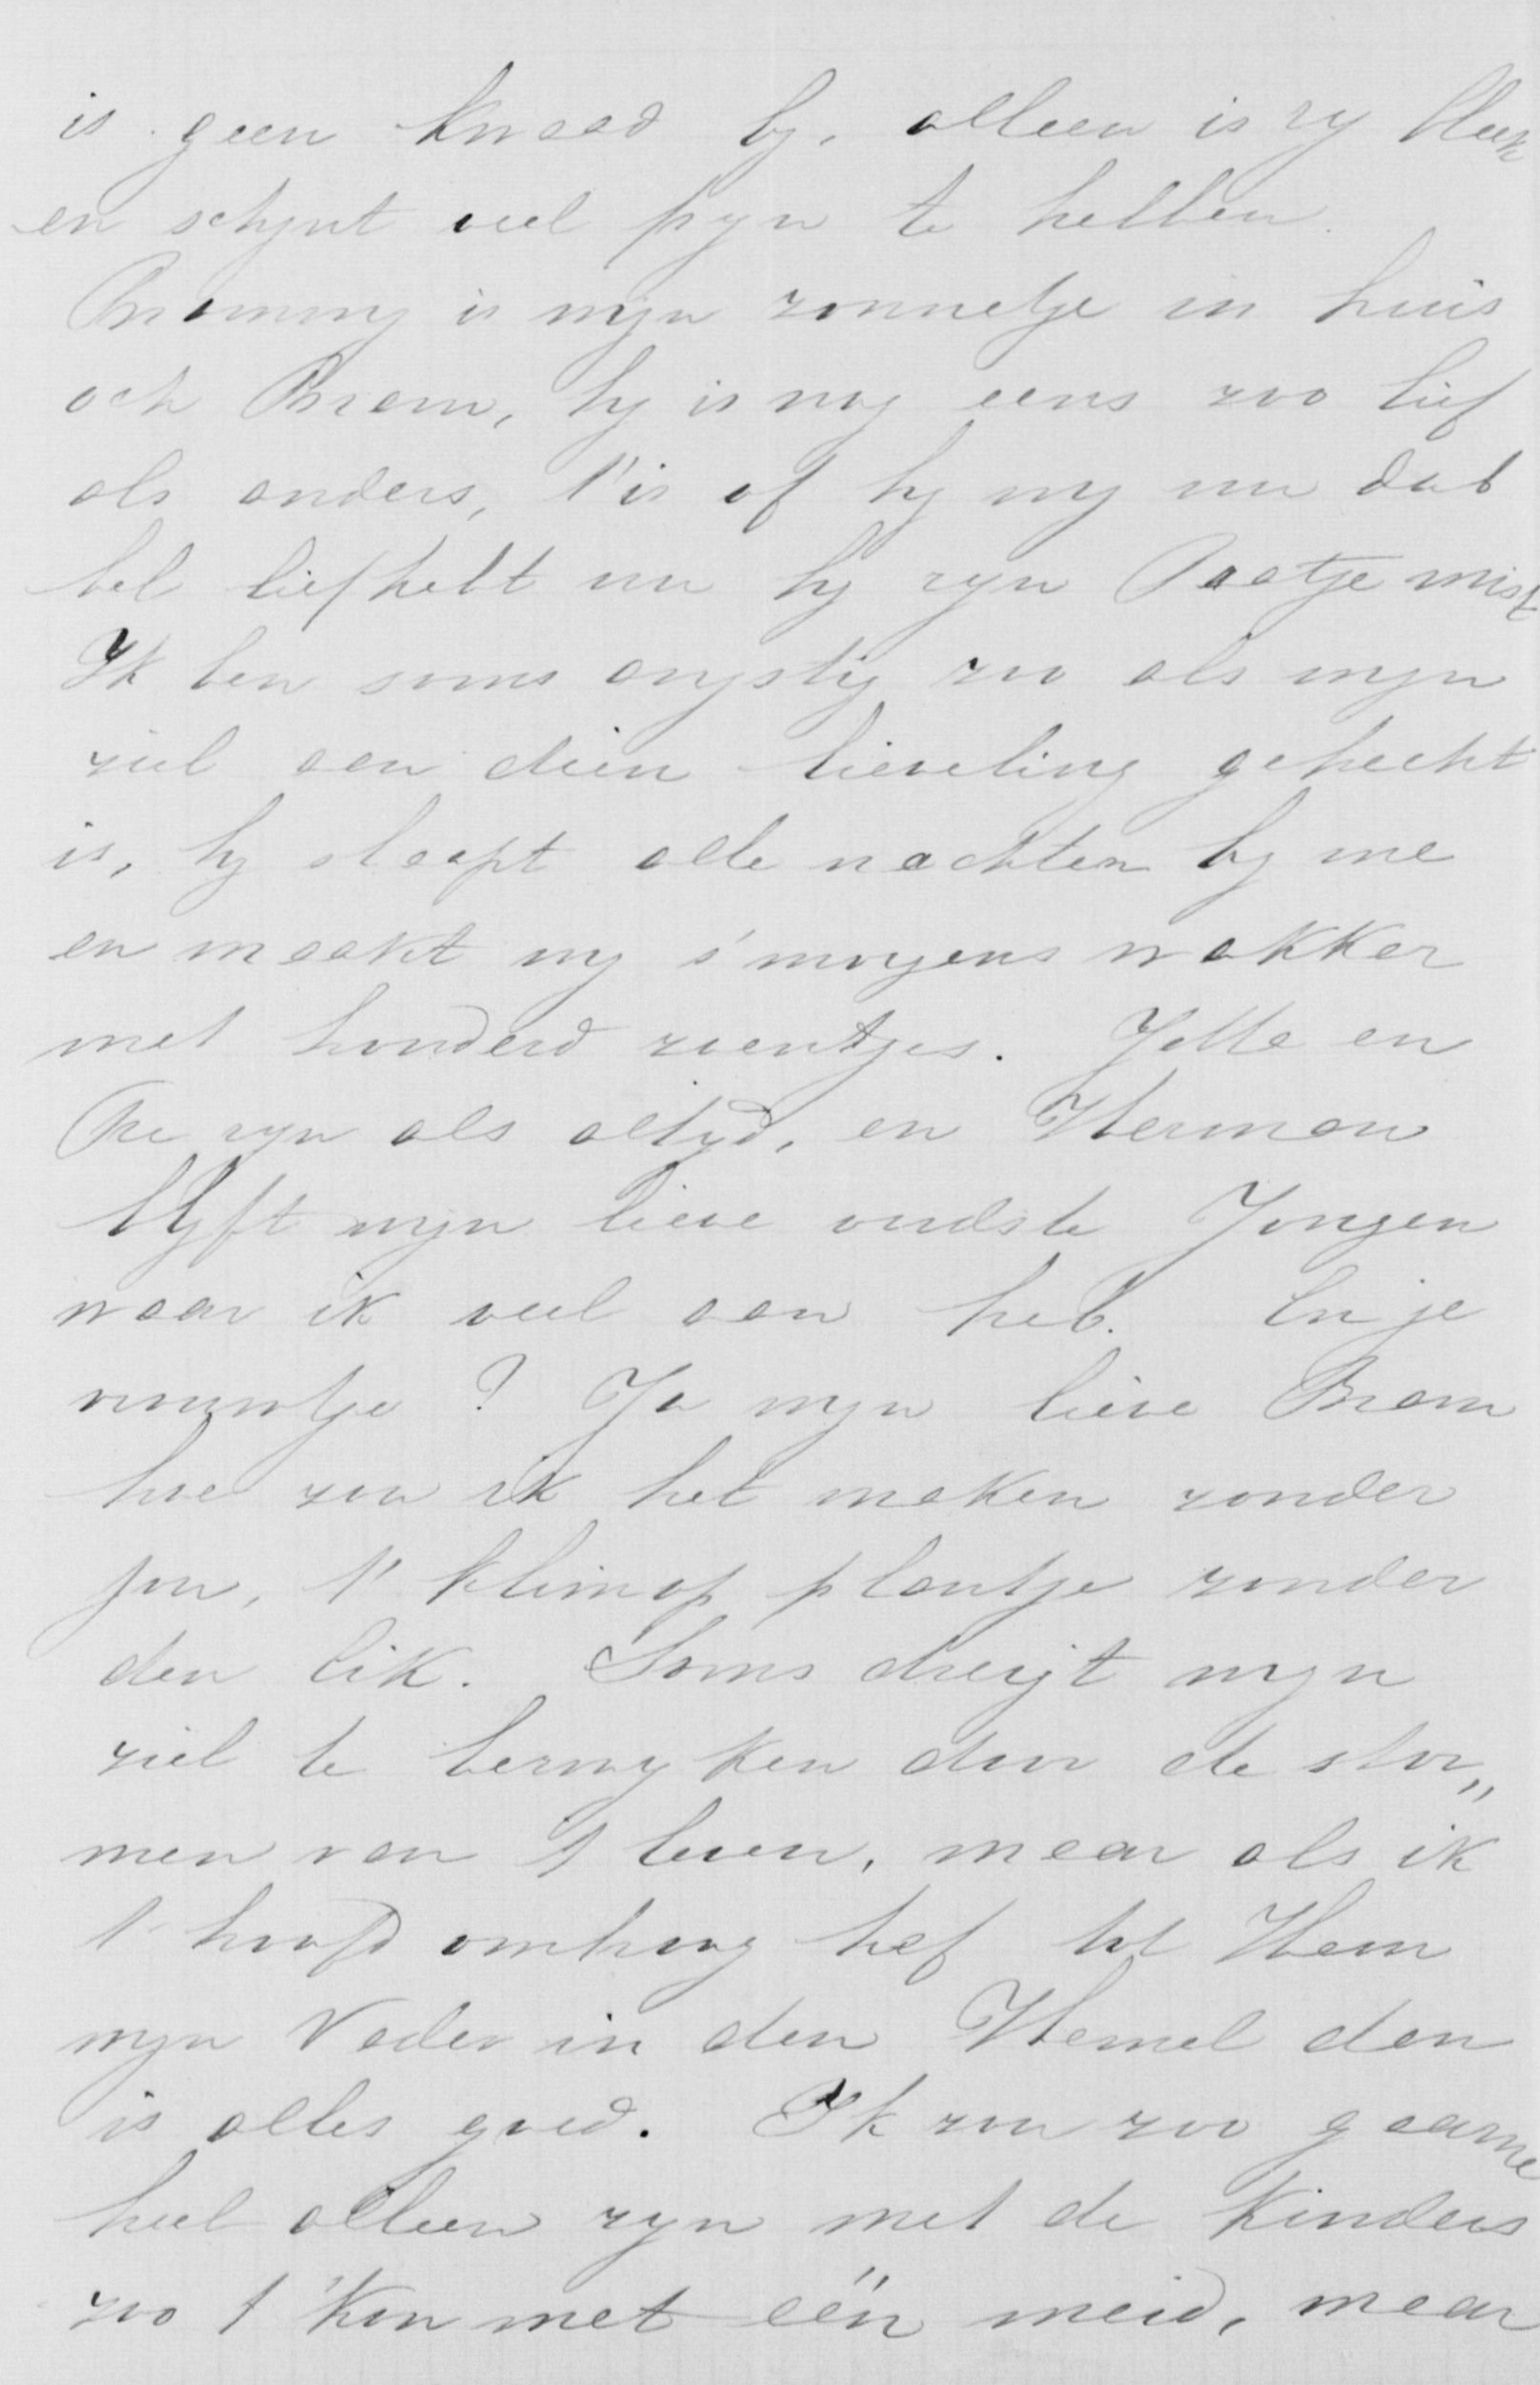 is geen kwaad by, alleen is zy bleek
en schynt veel pyn te hebben.
Brammy is myn zonnetje in huis
och Bram, hy is nog eens zoo lief
als anders, t'is of hy my nu dub
bel liefhebt nu hy zyn Paatje mist
Ik ben soms angstig zoo als myn
ziel aan dien lieveling gehecht
is, hy slaapt alle nachten by me
en maakt my s'morgens wakker
met honderd zoentjes. Jelle en
zyn als altyd, en Herman
blyft myn lieve oudste Jongen
waar ik veel aan heb. En je
vrouwtje? Ja myn lieve Bram
hoe zou ik het maken zonder
jou, t' klimop plantje zonder
den eik. Soms dreigt myn
ziel te bezwyken door de stor„
men van t leven, maar als ik
t hoofd omhoog hef tot Hem
myn Vader in den Hemel dan
is alles goed. Ik zou zoo gaarne
heel alleen zyn met de Kinders
zoo t kon met één meid, maar